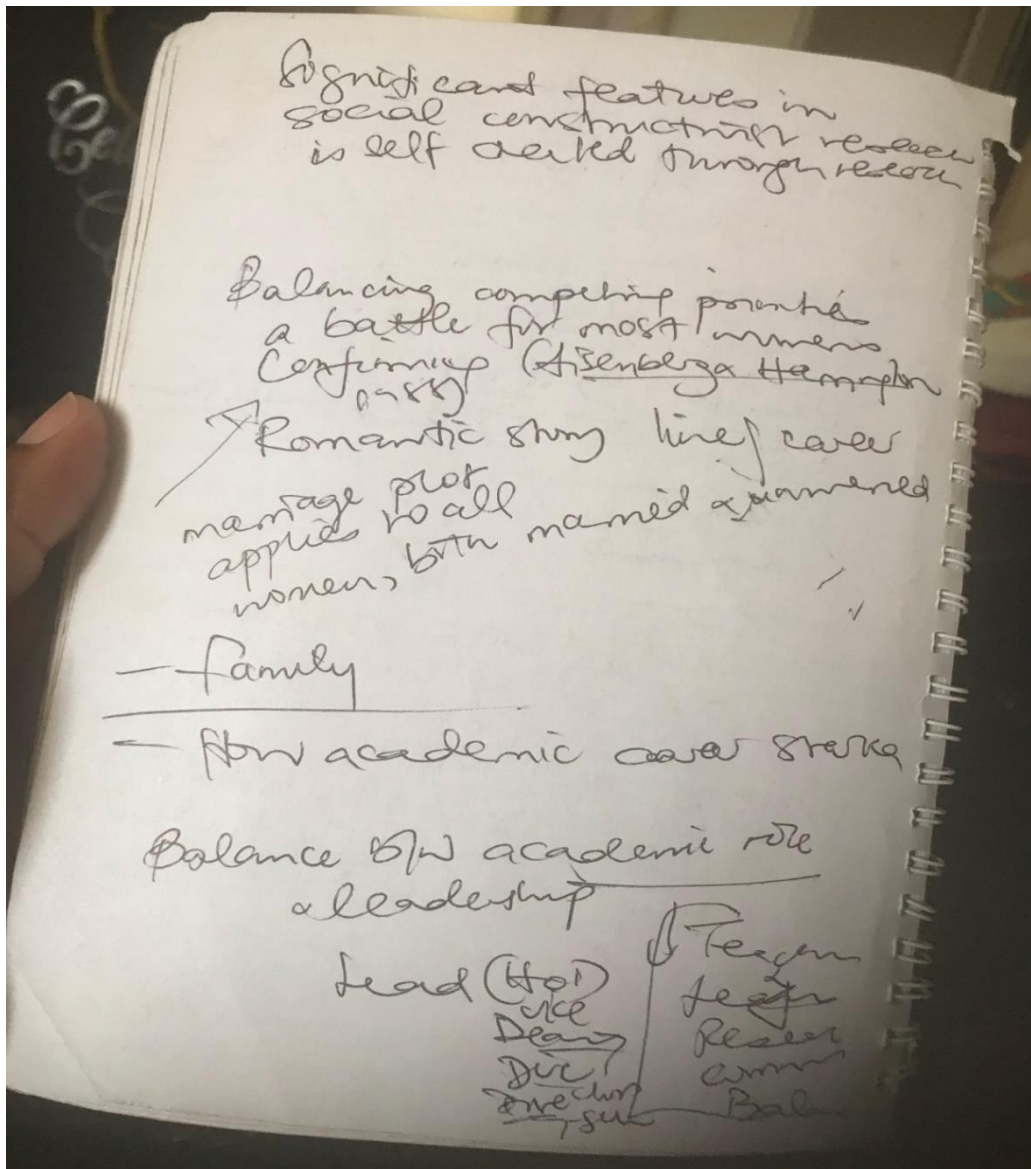 Significant features in
social constructionist research
is self created through research
Balancing competing priorities
a battle for most womens
Confirming (Aisenberg & Harrington
1988)
Romantic story line / career
marriage plot
applies to all
women, both married & unmarried
- family
- How academic career started
Balance b/w academic role
& leadership
Lead (HoD)
vice
Dean
Dir
Director
Teach
Resear
comm
Bala